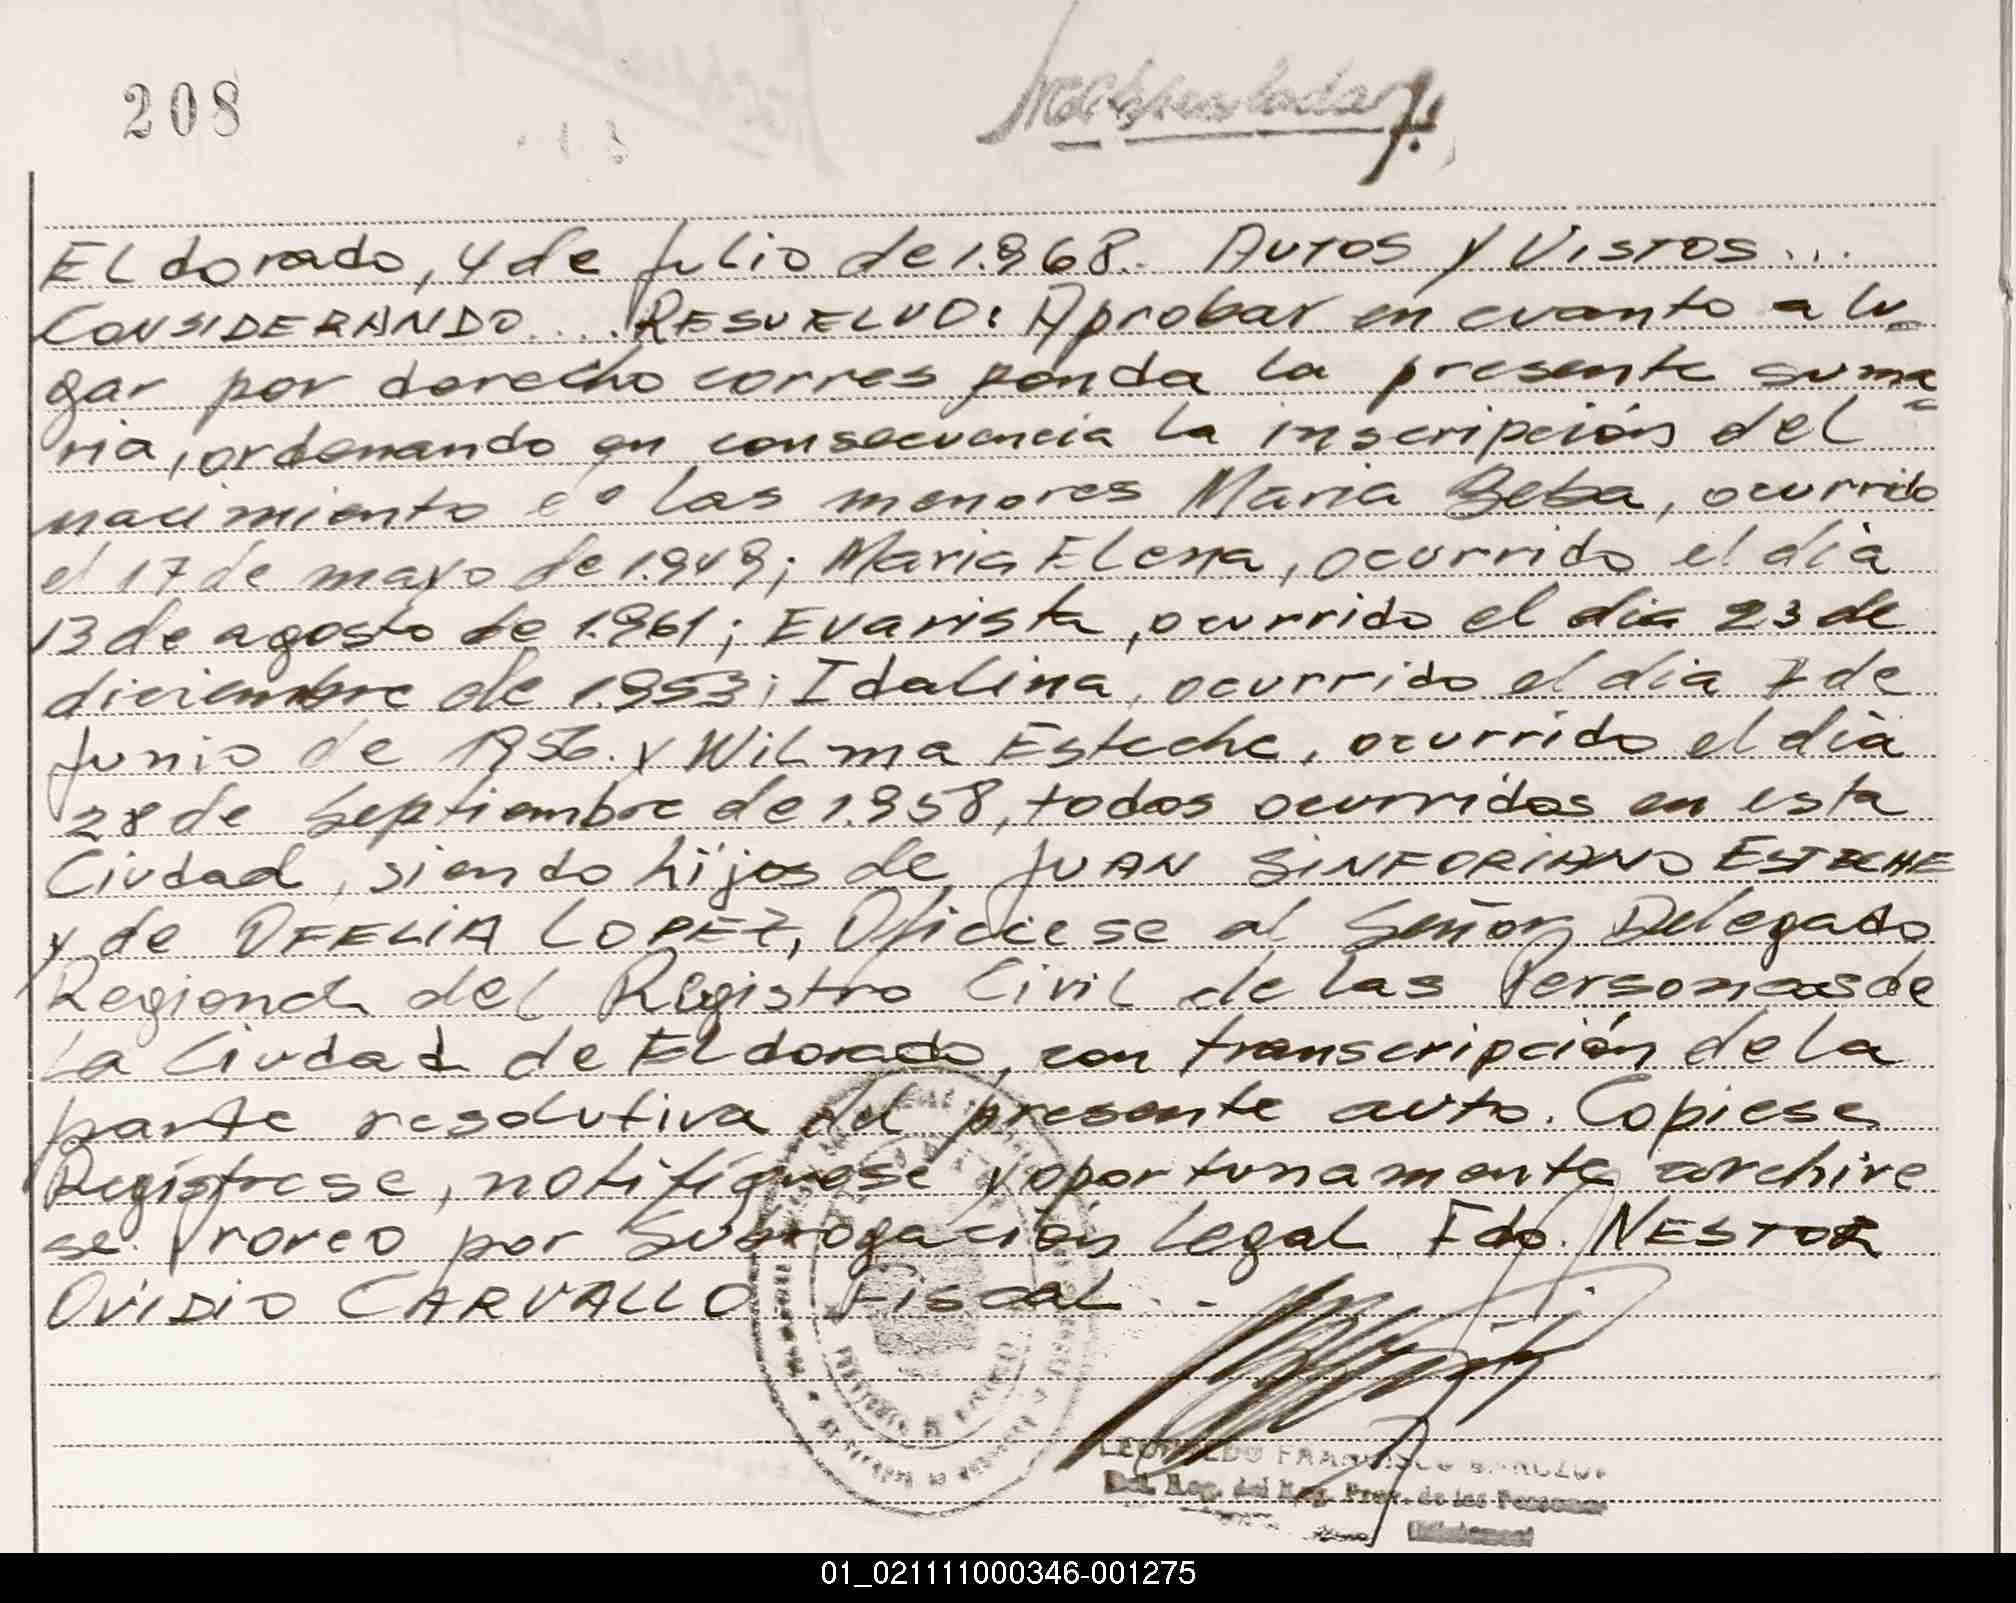 208
Eldorado, 4 de Julio de 1.968. AUTOS Y VISTOS...
CONSIDERANDO... RESUELVO: Aprobar en cuanto a lu-
gar por derecho corresponda la presente suma-
ria, ordenando en consecuencia la inscripción del
nacimiento de las menores Maria Beba, ocurrido
el 17 de mayo de 1.949; Maria Elena, ocurrido el día
13 de agosto de 1.961; Evarista, ocurrido el dia 23 de
diciembre de 1.953; Idalina, ocurrido el dia 7 de
Junio de 1956. y Wilma Esteche, ocurrido el día
28 de Septiembre de 1.958, todos ocurridos en esta
Ciudad, siendo hijos de JUAN SINFORIANO ESTECHE
y de OFELIA LOPEZ, Oficiese al Señor Delegado
Regional del Registro Civil de las Personas de
la Ciudad de Eldorado, con transcripción de la
parte resolutiva del presente auto. Copiese
Regístrese, notifíquese y oportunamente archive
se. Proveo por Subrogación Legal Fdo. NESTOR
OVIDIO CARVALLO Fiscal. -
LEOPOLDO FRANCISCO
Del. Reg. del Reg. Prov. de las Personas
01_021111000346-001275